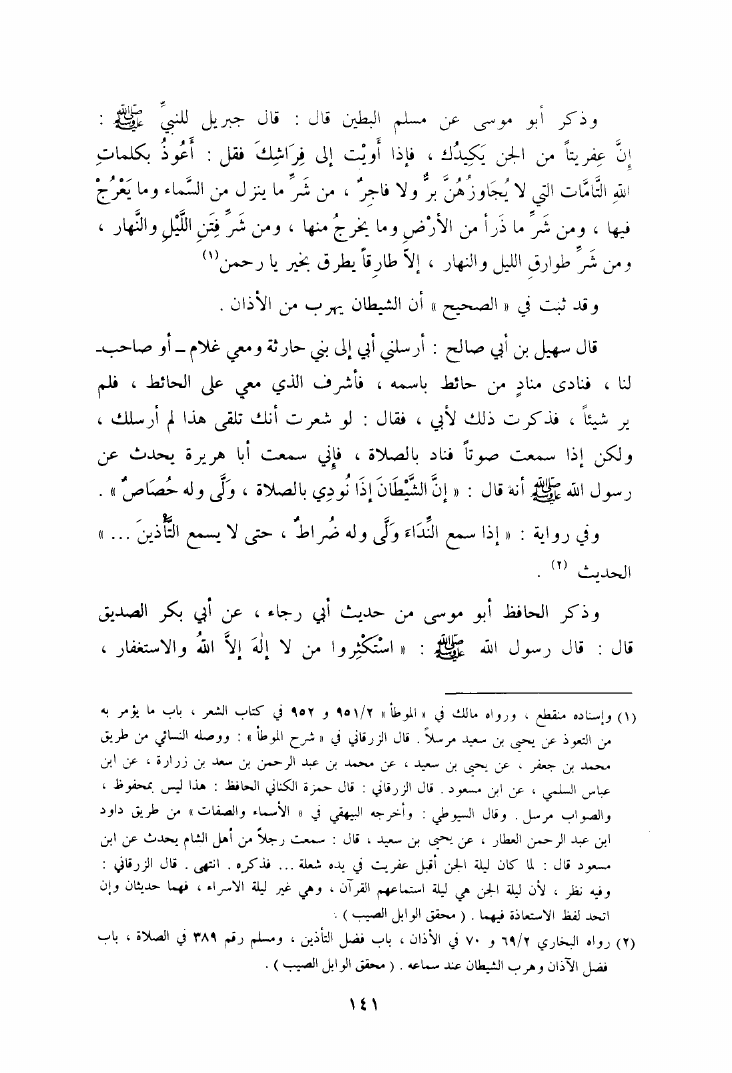 وذكر أبو موسى عن مسلم البطين قال : قال جبريل للنبيِّ ﷺ :
إنَّ عِفريتاً من الجن يَكِيدُك ، فإذا أَويْت إلى فِرَاشِكَ فقل : أَعُوذُ بكلماتِ
اللهِ التَّامَّات التي لا يُجَاوزُهُنَّ برٌّ ولا فاجرٌ ، من شَرِّ ما ينزل من السَّماء وما يَعْرُجْ
فيها ، ومن شَرِّ ما ذَرأ من الأرْضِ وما يخرجُ منها ، ومن شَرِّ فِتَنِ اللَّيْلِ والنَّهار ،
ومن شَرِّ طوارقِ الليل والنهار ، إلاَّ طارِقاً يطرق بخير يا رحمن(١)
وقد ثبت في « الصحيح » أن الشيطان يهرب من الأذان .
قال سهيل بن أبي صالح : أرسلني أبي إلى بني حارثة ومعي غلام ـ أو صاحب ـ
لنا ، فنادى منادٍ من حائط باسمه ، فأشرف الذي معي على الحائط ، فلم
ير شيئاً ، فذكرت ذلك لأبي ، فقال : لو شعرت أنك تلقى هذا لم أرسلك ،
ولكن إذا سمعت صوتاً فناد بالصلاة ، فإني سمعت أبا هريرة يحدث عن
رسول الله ﷺ أنه قال : « إنَّ الشَّيْطَانَ إذَا نُودِي بالصلاة ، وَلَّى وله حُصَاصٌ » .
وفي رواية : « إذا سمع النِّدَاءَ وَلَّى وله ضُراطٌ ، حتى لا يسمع التَّأْذينَ ... »
الحديث (٢) .
وذكر الحافظ أبو موسى من حديث أبي رجاء ، عن أبي بكر الصديق
قال : قال رسول الله ﷺ : « اسْتَكْثِروا من لا إلٰهَ إلاَّ اللهُ والاستغفار ،
(١) وإسناده منقطع ، ورواه مالك في « الموطأ » ٩٥١/٢ و ٩٥٢ في كتاب الشعر ، باب ما يؤمر به
من التعوذ عن يحيى بن سعيد مرسلاً . قال الزرقاني في « شرح الموطأ » : ووصله النسائي من طريق
محمد بن جعفر ، عن يحيى بن سعيد ، عن محمد بن عبد الرحمن بن سعد بن زرارة ، عن ابن
عباس السلمي ، عن ابن مسعود . قال الزرقاني : قال حمزة الكناني الحافظ : هذا ليس بمحفوظ ،
والصواب مرسل . وقال السيوطي : وأخرجه البيهقي في « الأسماء والصفات » من طريق داود
ابن عبد الرحمن العطار ، عن يحيى بن سعيد ، قال : سمعت رجلاً من أهل الشام يحدث عن ابن
مسعود قال : لما كان ليلة الجن أقبل عفريت في يده شعلة ... فذكره . انتهى . قال الزرقاني :
وفيه نظر ، لأن ليلة الجن هي ليلة استماعهم القرآن ، وهي غير ليلة الاسراء ، فهما حديثان وإن
اتحد لفظ الاستعاذة فيهما . ( محقق الوابل الصيب ) .
(٢) رواه البخاري ٦٩/٢ و ٧٠ في الأذان ، باب فضل التأذين ، ومسلم رقم ٣٨٩ في الصلاة ، باب
فضل الآذان وهرب الشيطان عند سماعه . ( محقق الوابل الصيب ) .
١٤١